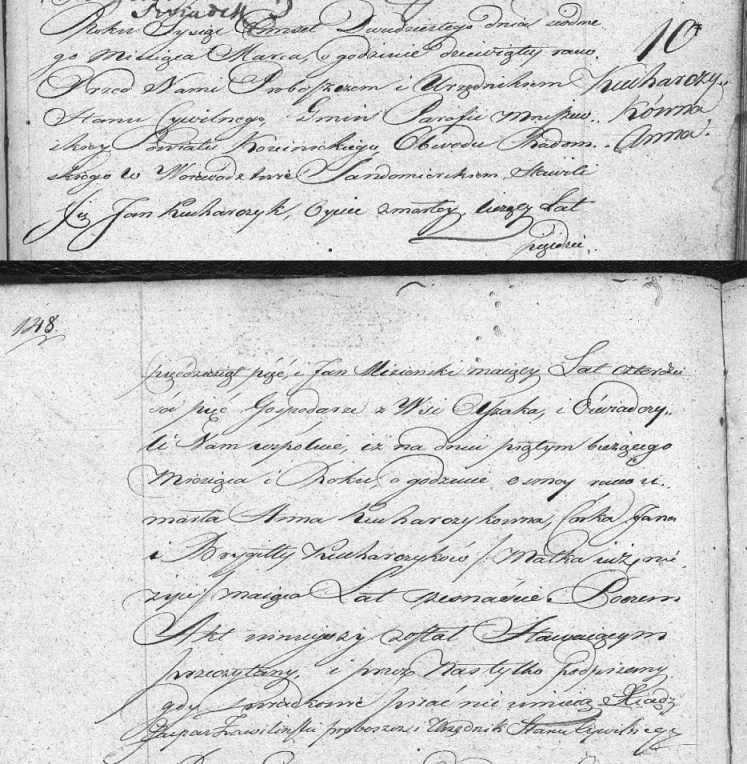 Świadek
Roku Tysiąc Ośmset Dwudziestego dnia siodme
go Miesiąca Marca, o godzinie dziewiątey rano.
Przed Nami Proboszczem i Urzędnikiem
Stanu Cywilnego, Gminy Parafii Mniszew
skiey Powiatu Kozienickiego, Obwodu Radom
skiego w Woiewodztwie Sandomierskiem, Stawili
Się Jan Kucharczyk, Oyciec zmarłey, liczący Lat
pięćdzie
10
Kucharczy
kowna
Anna.
148.
pięćdziesiąt pięć, i Jan maiący Lat czterdzie
ści pięć Gospodarze z Wsi i Oświadczy
li Nam wspolnie, iż na dniu piątym bieżącego
Miesiąca i Roku, o godzinie osmey rano u
marła Anna Kucharczykowna, Corka Jana
i Brygitty Kucharczykow / Matka iuż nie
żyie / maiąca Lat szesnaście. Poczem
Akt ninieyszy został Stawaiącym
przeczytany, i przez Nas tylko podpisany
gdy świadkowie pisać nie umieią. Xiądz
Gaspar proboszcz i Urzędnik Stanu Cywilnego